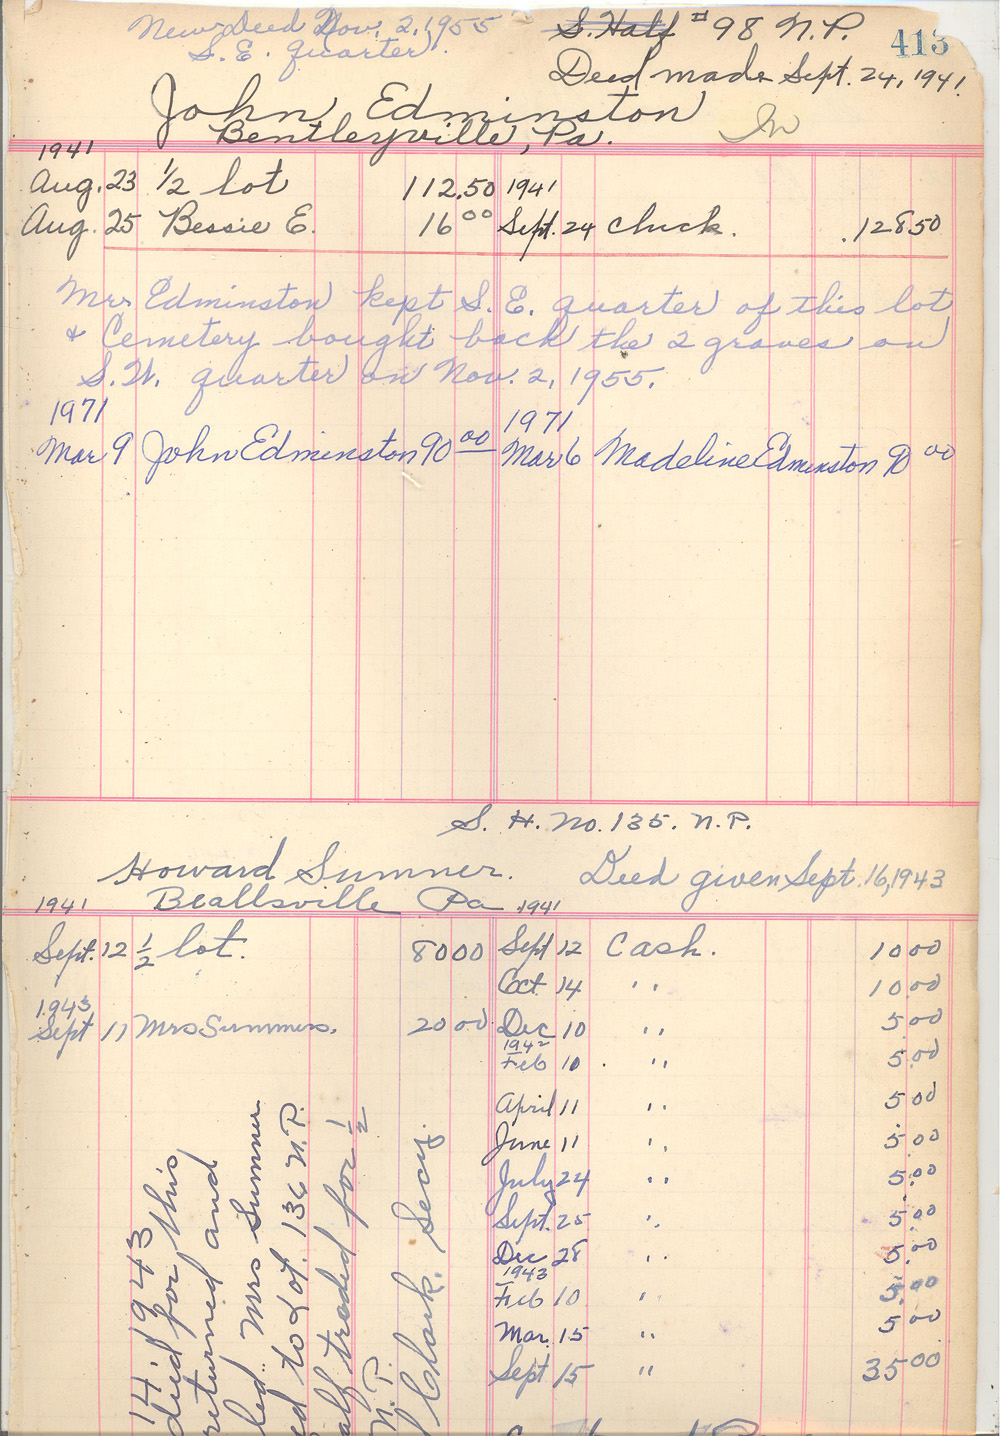 New Deed Nov. 2, 1955
S. E. quarter.
S. Half # 98 N.P.
413
Deed made Sept. 24, 1941.
John Edminston
Bentleyville, Pa.
In
1941
Aug. 23 1/2 lot 112.50 1941
Aug. 25 Bessie E. 16 00 Sept. 24 Check. 128 50
Mrs Edminston kept S. E. quarter of this lot
& Cemetery bought back the 2 graves on
S.W. quarter on Nov. 2, 1955.
1971 1971
Mar 9 John Edminston 90 00 Mar 6 Madeline Edminston 90 00
S. H. No. 135. N.P.
Howard Sumner. Deed given Sept. 16, 1943
Beallsville Pa
1941 1941
Sept. 12 1/2 lot. 80 00 Sept 12 Cash. 10 00
Oct 14 " 10 00
1943
Sept 11 Mrs Summers. 20 00 Dec 10 " 5 00
1942
Feb 10 " 5 00
April 11 " 5 00
June 11 " 5 00
July 24 " 5 00
Sept. 25 " 5 00
Dec 28 " 5 00
1943
Feb 10 " 5 00
Mar. 15 " 5 00
Sept 15 " 35 00
14 1943
deed for this
returned and
led. Mrs Sumner
ed to Lot. 136 N.P.
alf traded for 1/2
N.P.
Clark. Secy.